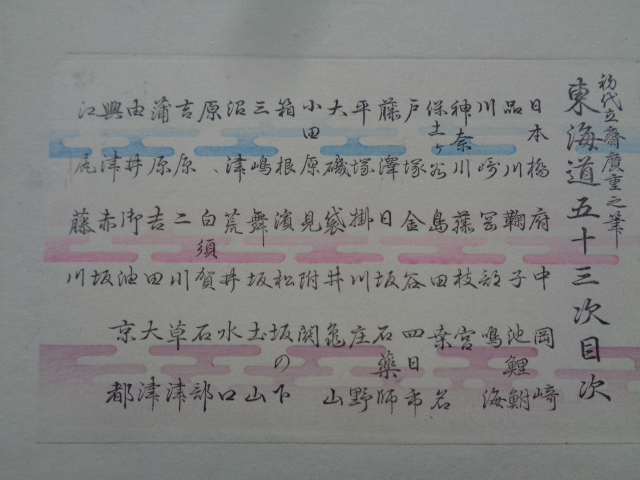 初代立齋廣重之筆
東海道五十三次目次
日本橋
品川
川崎
神奈川
保土ヶ谷
戸塚
藤澤
平塚
大磯
小田原
箱根
三嶋
沼津
原、
吉原
蒲原
由井
興津
江尻
府中
鞠子
岡部
藤枝
島田
金谷
日坂
掛川
袋井
見附
濱松
舞坂
荒井
白須賀
二川
吉田
御油
赤坂
藤川
岡崎
池鯉鮒
鳴海
宮
桑名
四日市
石薬師
庄野
亀山
関
坂の下
土山
水口
石部
草津
大津
京都